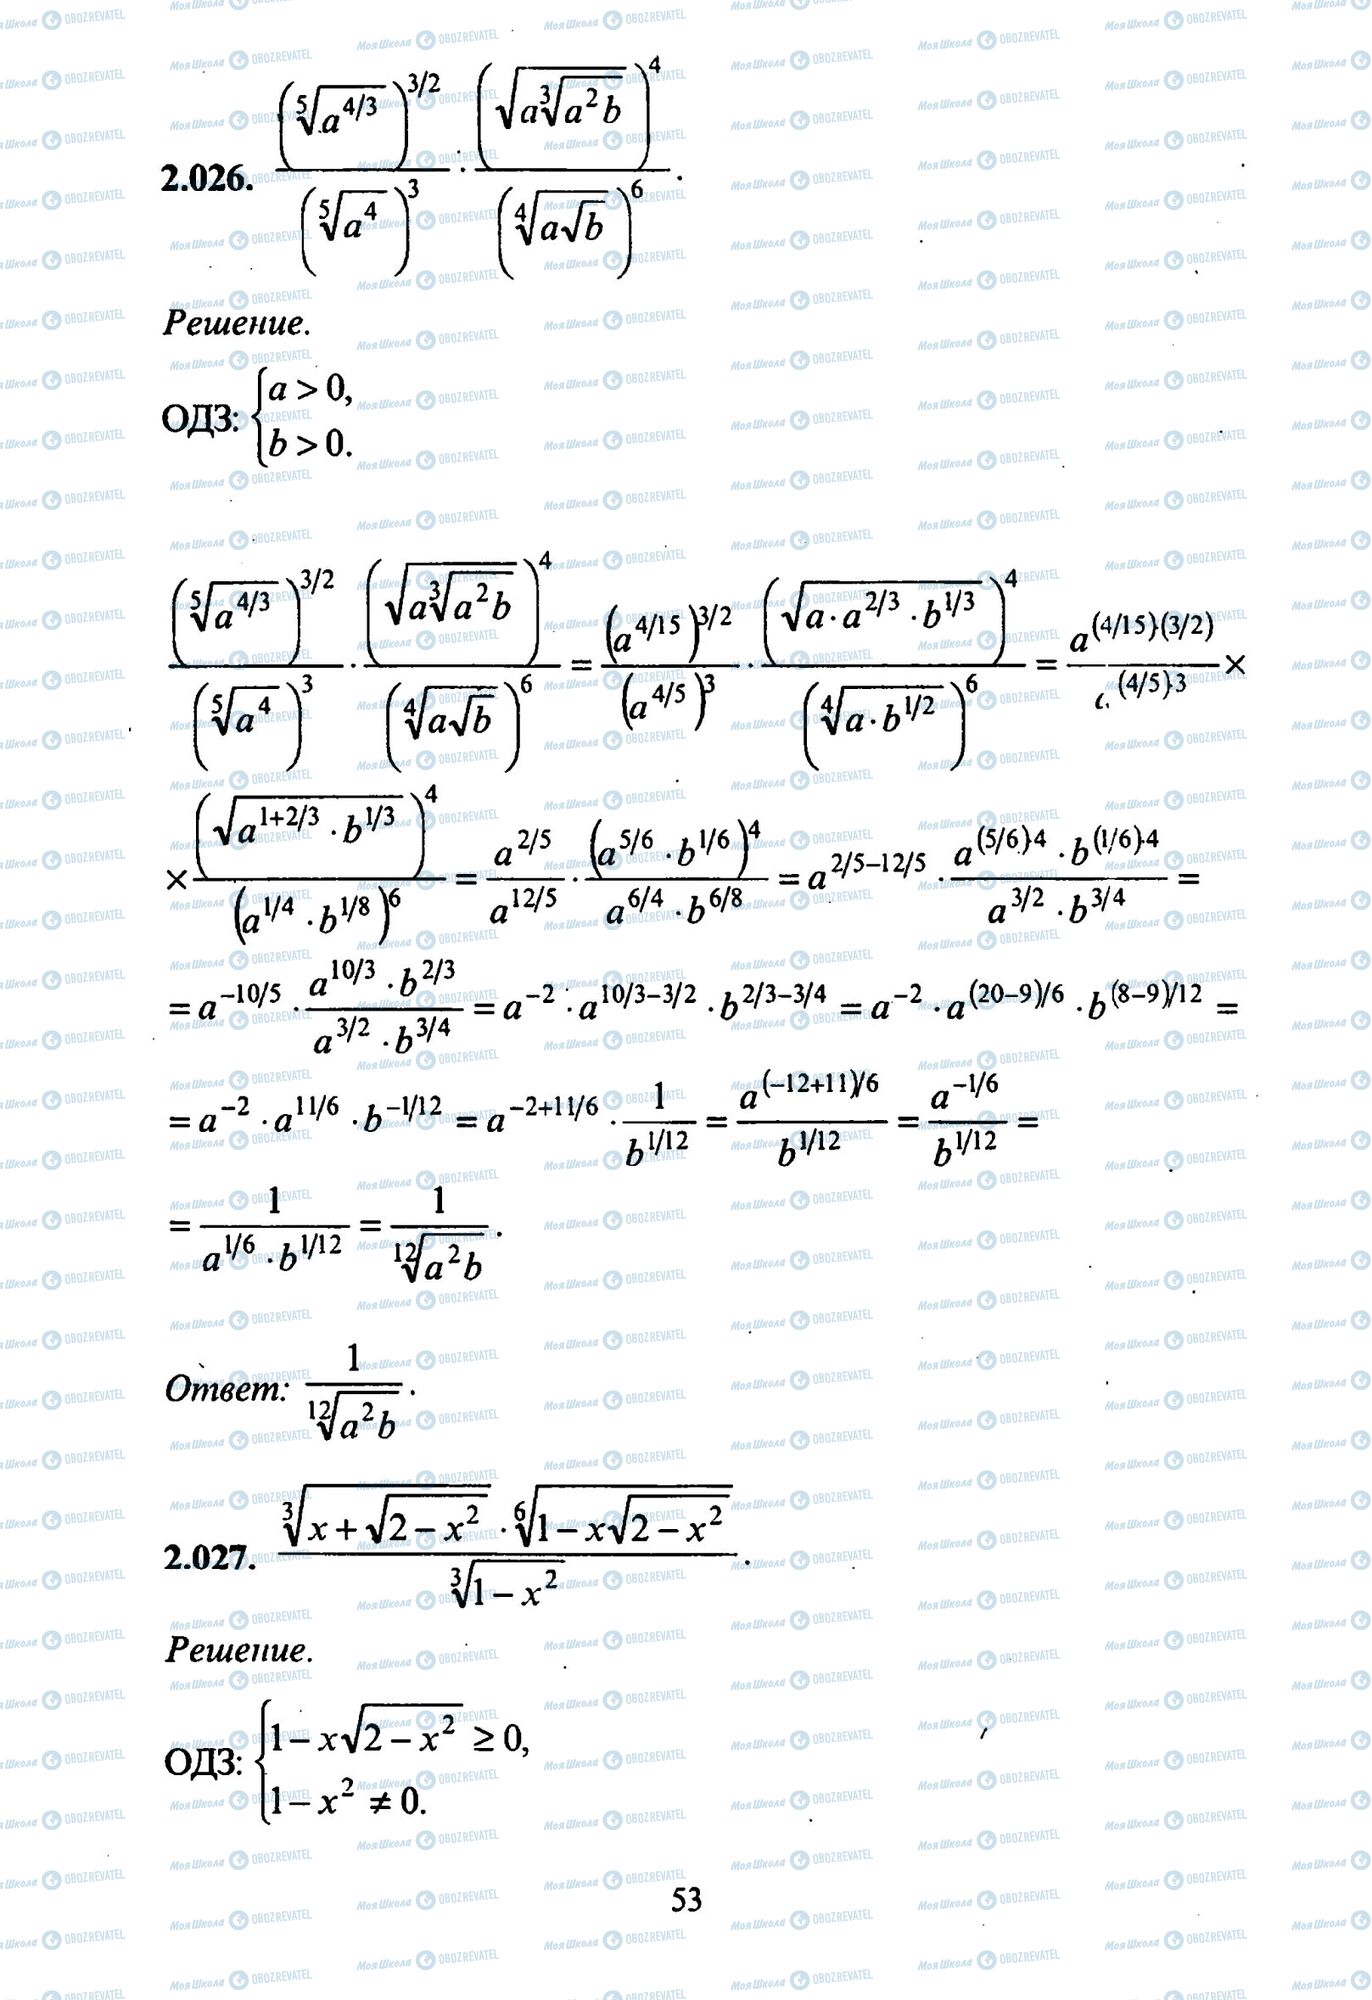 2.026. \frac{\left(\sqrt[5]{a^{4/3}}\right)^{3/2}}{\left(\sqrt[5]{a^4}\right)^3} \cdot \frac{\left(\sqrt{a\sqrt[3]{a^2 b}}\right)^4}{\left(\sqrt[4]{a\sqrt{b}}\right)^6}.
Решение.
ОДЗ: \begin{cases} a > 0, \\ b > 0. \end{cases}
\frac{\left(\sqrt[5]{a^{4/3}}\right)^{3/2}}{\left(\sqrt[5]{a^4}\right)^3} \cdot \frac{\left(\sqrt{a\sqrt[3]{a^2 b}}\right)^4}{\left(\sqrt[4]{a\sqrt{b}}\right)^6} = \frac{\left(a^{4/15}\right)^{3/2}}{\left(a^{4/5}\right)^3} \cdot \frac{\left(\sqrt{a \cdot a^{2/3} \cdot b^{1/3}}\right)^4}{\left(\sqrt[4]{a \cdot b^{1/2}}\right)^6} = \frac{a^{(4/15)\cdot(3/2)}}{a^{(4/5)\cdot 3}} \times
\times \frac{\left(\sqrt{a^{1+2/3} \cdot b^{1/3}}\right)^4}{\left(a^{1/4} \cdot b^{1/8}\right)^6} = \frac{a^{2/5}}{a^{12/5}} \cdot \frac{\left(a^{5/6} \cdot b^{1/6}\right)^4}{a^{6/4} \cdot b^{6/8}} = a^{2/5-12/5} \cdot \frac{a^{(5/6)\cdot 4} \cdot b^{(1/6)\cdot 4}}{a^{3/2} \cdot b^{3/4}} =
= a^{-10/5} \cdot \frac{a^{10/3} \cdot b^{2/3}}{a^{3/2} \cdot b^{3/4}} = a^{-2} \cdot a^{10/3-3/2} \cdot b^{2/3-3/4} = a^{-2} \cdot a^{(20-9)/6} \cdot b^{(8-9)/12} =
= a^{-2} \cdot a^{11/6} \cdot b^{-1/12} = a^{-2+11/6} \cdot \frac{1}{b^{1/12}} = \frac{a^{(-12+11)/6}}{b^{1/12}} = \frac{a^{-1/6}}{b^{1/12}} =
= \frac{1}{a^{1/6} \cdot b^{1/12}} = \frac{1}{\sqrt[12]{a^2 b}}.
Ответ: \frac{1}{\sqrt[12]{a^2 b}}.
2.027. \frac{\sqrt[3]{x+\sqrt{2-x^2}} \cdot \sqrt[6]{1-x\sqrt{2-x^2}}}{\sqrt[3]{1-x^2}}.
Решение.
ОДЗ: \begin{cases} 1-x\sqrt{2-x^2} \geq 0, \\ 1-x^2 \neq 0. \end{cases}
53
МояШкола OBOZREVATEL